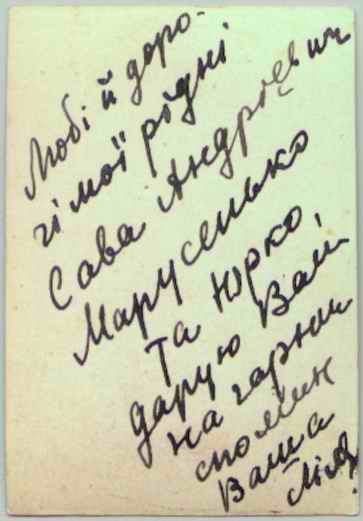 Любі й доро-
гі мої рідні
Сава Андрієвич
Марусенько
та Юрко,
дарую Вам
на гарний
спомин
Ваша
Ліда